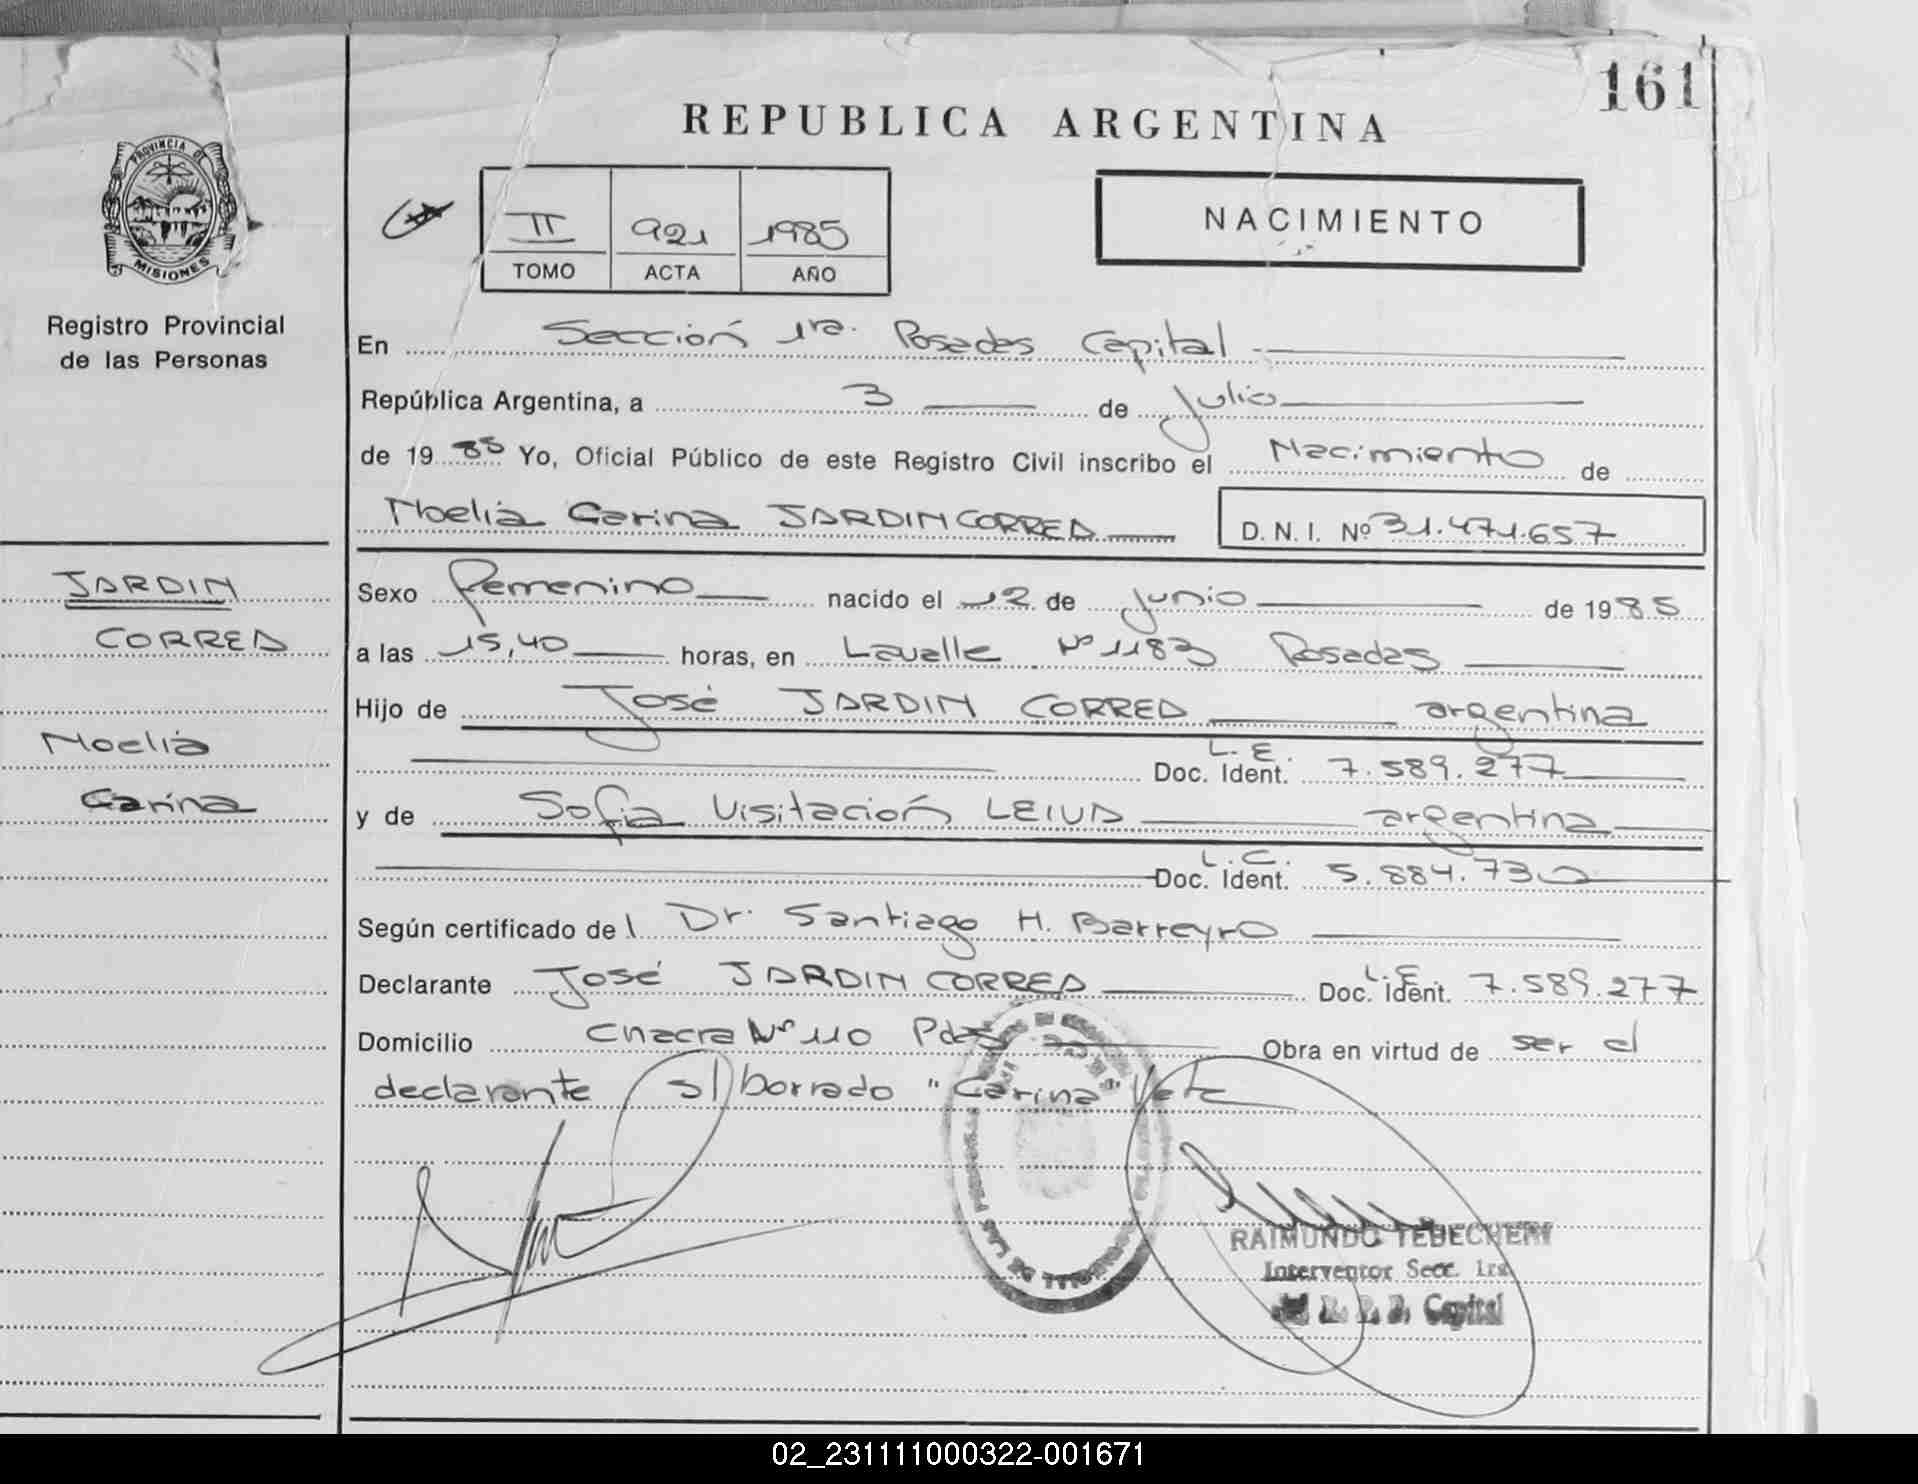 161
REPUBLICA ARGENTINA
PROVINCIA DE
MISIONES
Registro Provincial
de las Personas
II 921 1985
TOMO ACTA AÑO
NACIMIENTO
En Sección 1ra. Posadas Capital
República Argentina, a 3 de Julio
de 19 85 Yo, Oficial Público de este Registro Civil inscribo el Nacimiento de
Noelia Carina JARDIN CORREA D. N. I. Nº 31.471.657
JARDIN
CORREA
Noelia
Carina
Sexo femenino nacido el 12 de junio de 1985
a las 15,40 horas, en Lavalle Nº 1183 Posadas
Hijo de José JARDIN CORREA argentina
L. E.
Doc. Ident. 7.589.277
y de Sofia Visitación LEIVA argentina
L. C.
Doc. Ident. 5.884.730
Según certificado del Dr. Santiago H. Barreyro
Declarante José JARDIN CORREA L. E. Doc. Ident. 7.589.277
Domicilio Chacra Nº 110 Pdas Obra en virtud de ser el
declarante s/ borrado "Carina" Vale
RAIMUNDO TEBECHERI
Interventor Secc. 1ra
Capital
02_231111000322-001671